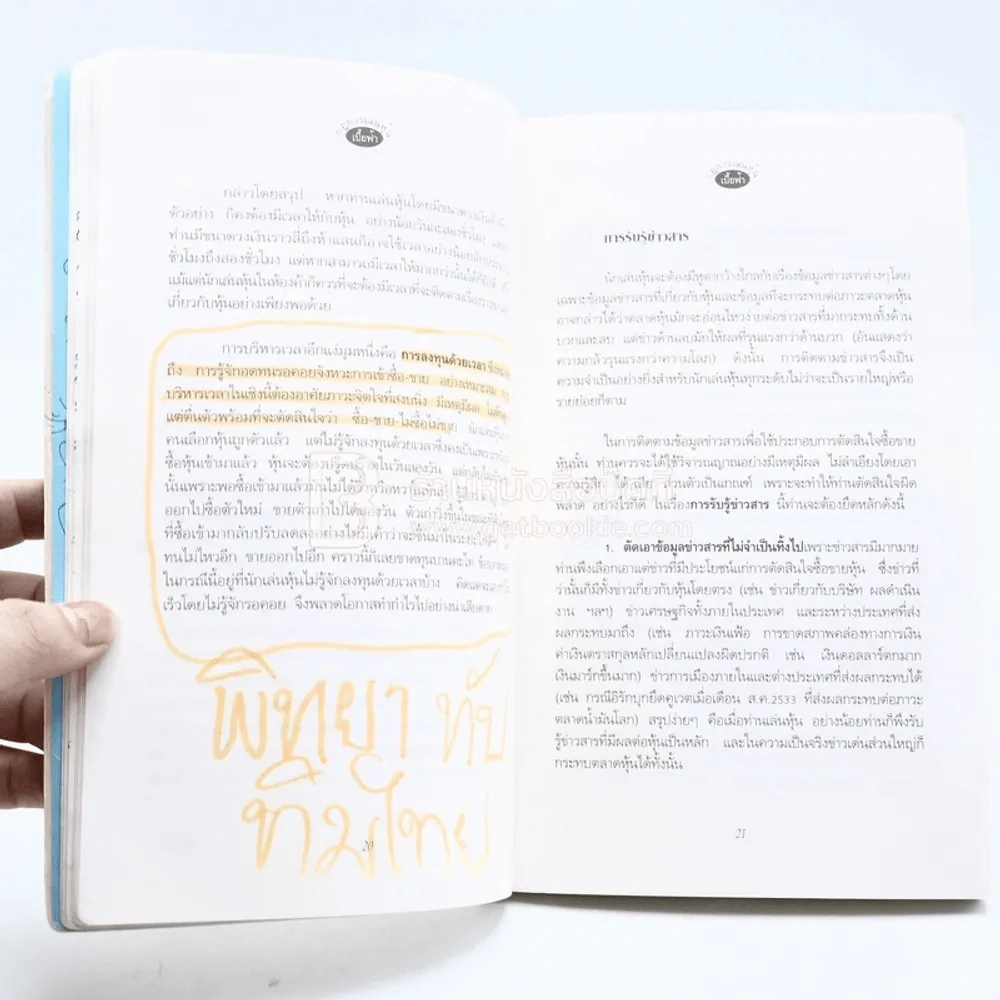 เบี้ยฟ้า
กล่าวโดยสรุป หากท่านเล่นหุ้นโดยมีขนาดวงเงิน
ตัวอย่าง ก็คงต้องมีเวลาให้กับหุ้น อย่างน้อยวันละสองชั่วโมง
ท่านมีขนาดวงเงินราวสี่ถึงห้าแสนก็อาจใช้เวลาอย่างน้อยสัก
ชั่วโมงถึงสองชั่วโมง แต่หากสามารถมีเวลาให้มากกว่านั้นได้ก็ยิ่งดี
แม้แต่นักเล่นหุ้นในห้องค้าก็ควรที่จะต้องมีเวลาที่จะติดตามเรื่องราว
เกี่ยวกับหุ้นอย่างเพียงพอด้วย
การบริหารเวลาอีกแง่มุมหนึ่งคือ การลงทุนด้วยเวลา
ถึง การรู้จักอดทนรอคอยจังหวะการเข้าซื้อ-ขาย อย่างเหมาะสม
บริหารเวลาในเชิงนี้ต้องอาศัยภาวะจิตใจที่สงบนิ่ง มีเหตุมีผล
แต่ตื่นตัวพร้อมที่จะตัดสินใจว่า ซื้อ-ขาย-ไม่ซื้อไม่ขาย
คนเลือกหุ้นถูกตัวแล้ว แต่ไม่รู้จักลงทุนด้วยเวลาซึ่งคงเป็นเพราะ
ซื้อหุ้นเข้ามาแล้ว หุ้นจะต้อง ในวันสองวัน
นั้นเพราะพอซื้อเข้ามาแล้ว
ออกไปซื้อตัวใหม่ ขายตัวเก่าไปได้สองวัน
ที่ซื้อเข้ามากลับปรับลดลงอย่างไม่
ทนไม่ไหวอีก ขายออกไปอีก คราวนี้ก็เลยขาดทุน
ในกรณีนี้อยู่ที่นักเล่นหุ้นไม่รู้จักลงทุนด้วยเวลาบ้าง คิดแต่จะ
เร็วโดยไม่รู้จักรอคอย จึงพลาดโอกาสทำกำไรไปอย่างน่าเสียดาย
พิทยา ทับ
ทิมไทย
20
เบี้ยฟ้า
การรับรู้ข่าวสาร
นักเล่นหุ้นจะต้องมีหูตากว้างไกลกับเรื่องข้อมูลข่าวสารต่างๆโดย
เฉพาะข้อมูลข่าวสารที่เกี่ยวกับหุ้นและข้อมูลที่จะกระทบต่อภาวะตลาดหุ้น
อาจกล่าวได้ว่าตลาดหุ้นมักจะอ่อนไหวง่ายต่อข่าวสารที่มากระทบทั้งด้าน
บวกและลบ แต่ข่าวด้านลบมักให้ผลที่รุนแรงกว่าด้านบวก (อันแสดงว่า
ความกลัวรุนแรงกว่าความโลภ) ดังนั้น การติดตามข่าวสารจึงเป็น
ความจำเป็นอย่างยิ่งสำหรับนักเล่นหุ้นทุกระดับไม่ว่าจะเป็นรายใหญ่หรือ
รายย่อยก็ตาม
ในการติดตามข้อมูลข่าวสารเพื่อใช้ประกอบการตัดสินใจซื้อขาย
หุ้นนั้น ท่านควรจะได้ใช้วิจารณญาณอย่างมีเหตุมีผล ไม่ลำเอียงโดยเอา
ความรู้สึก ได้ เสีย ส่วนตัวเป็นเกณฑ์ เพราะจะทำให้ท่านตัดสินใจผิด
พลาด อย่างไรก็ดี ในเรื่องการรับรู้ข่าวสาร นี้ท่านจะต้องยึดหลักดังนี้
1. ตัดเอาข้อมูลข่าวสารที่ไม่จำเป็นทิ้งไปเพราะข่าวสารมีมากมาย
ท่านพึงเลือกเอาแต่ข่าวที่มีประโยชน์แก่การตัดสินใจซื้อขายหุ้น ซึ่งข่าวที่
ว่านั้นก็มีทั้งข่าวเกี่ยวกับหุ้นโดยตรง (เช่น ข่าวเกี่ยวกับบริษัท ผลดำเนิน
งาน ฯลฯ) ข่าวเศรษฐกิจทั้งภายในประเทศ และระหว่างประเทศที่ส่ง
ผลกระทบมาถึง (เช่น ภาวะเงินเฟ้อ การขาดสภาพคล่องทางการเงิน
ค่าเงินตราสกุลหลักเปลี่ยนแปลงผิดปรกติ เช่น เงินดอลลาร์ตกมาก
เงินมาร์กขึ้นมาก) ข่าวการเมืองภายในและต่างประเทศที่ส่งผลกระทบได้
(เช่น กรณีอิรักบุกยึดคูเวตเมื่อเดือน ส.ค.2533 ที่ส่งผลกระทบต่อภาวะ
ตลาดน้ำมันโลก) สรุปง่ายๆ คือเมื่อท่านเล่นหุ้น อย่างน้อยท่านก็พึงรับ
รู้ข่าวสารที่มีผลต่อหุ้นเป็นหลัก และในความเป็นจริงข่าวเด่นส่วนใหญ่ก็
กระทบตลาดหุ้นได้ทั้งนั้น
21
www.getbookie.com